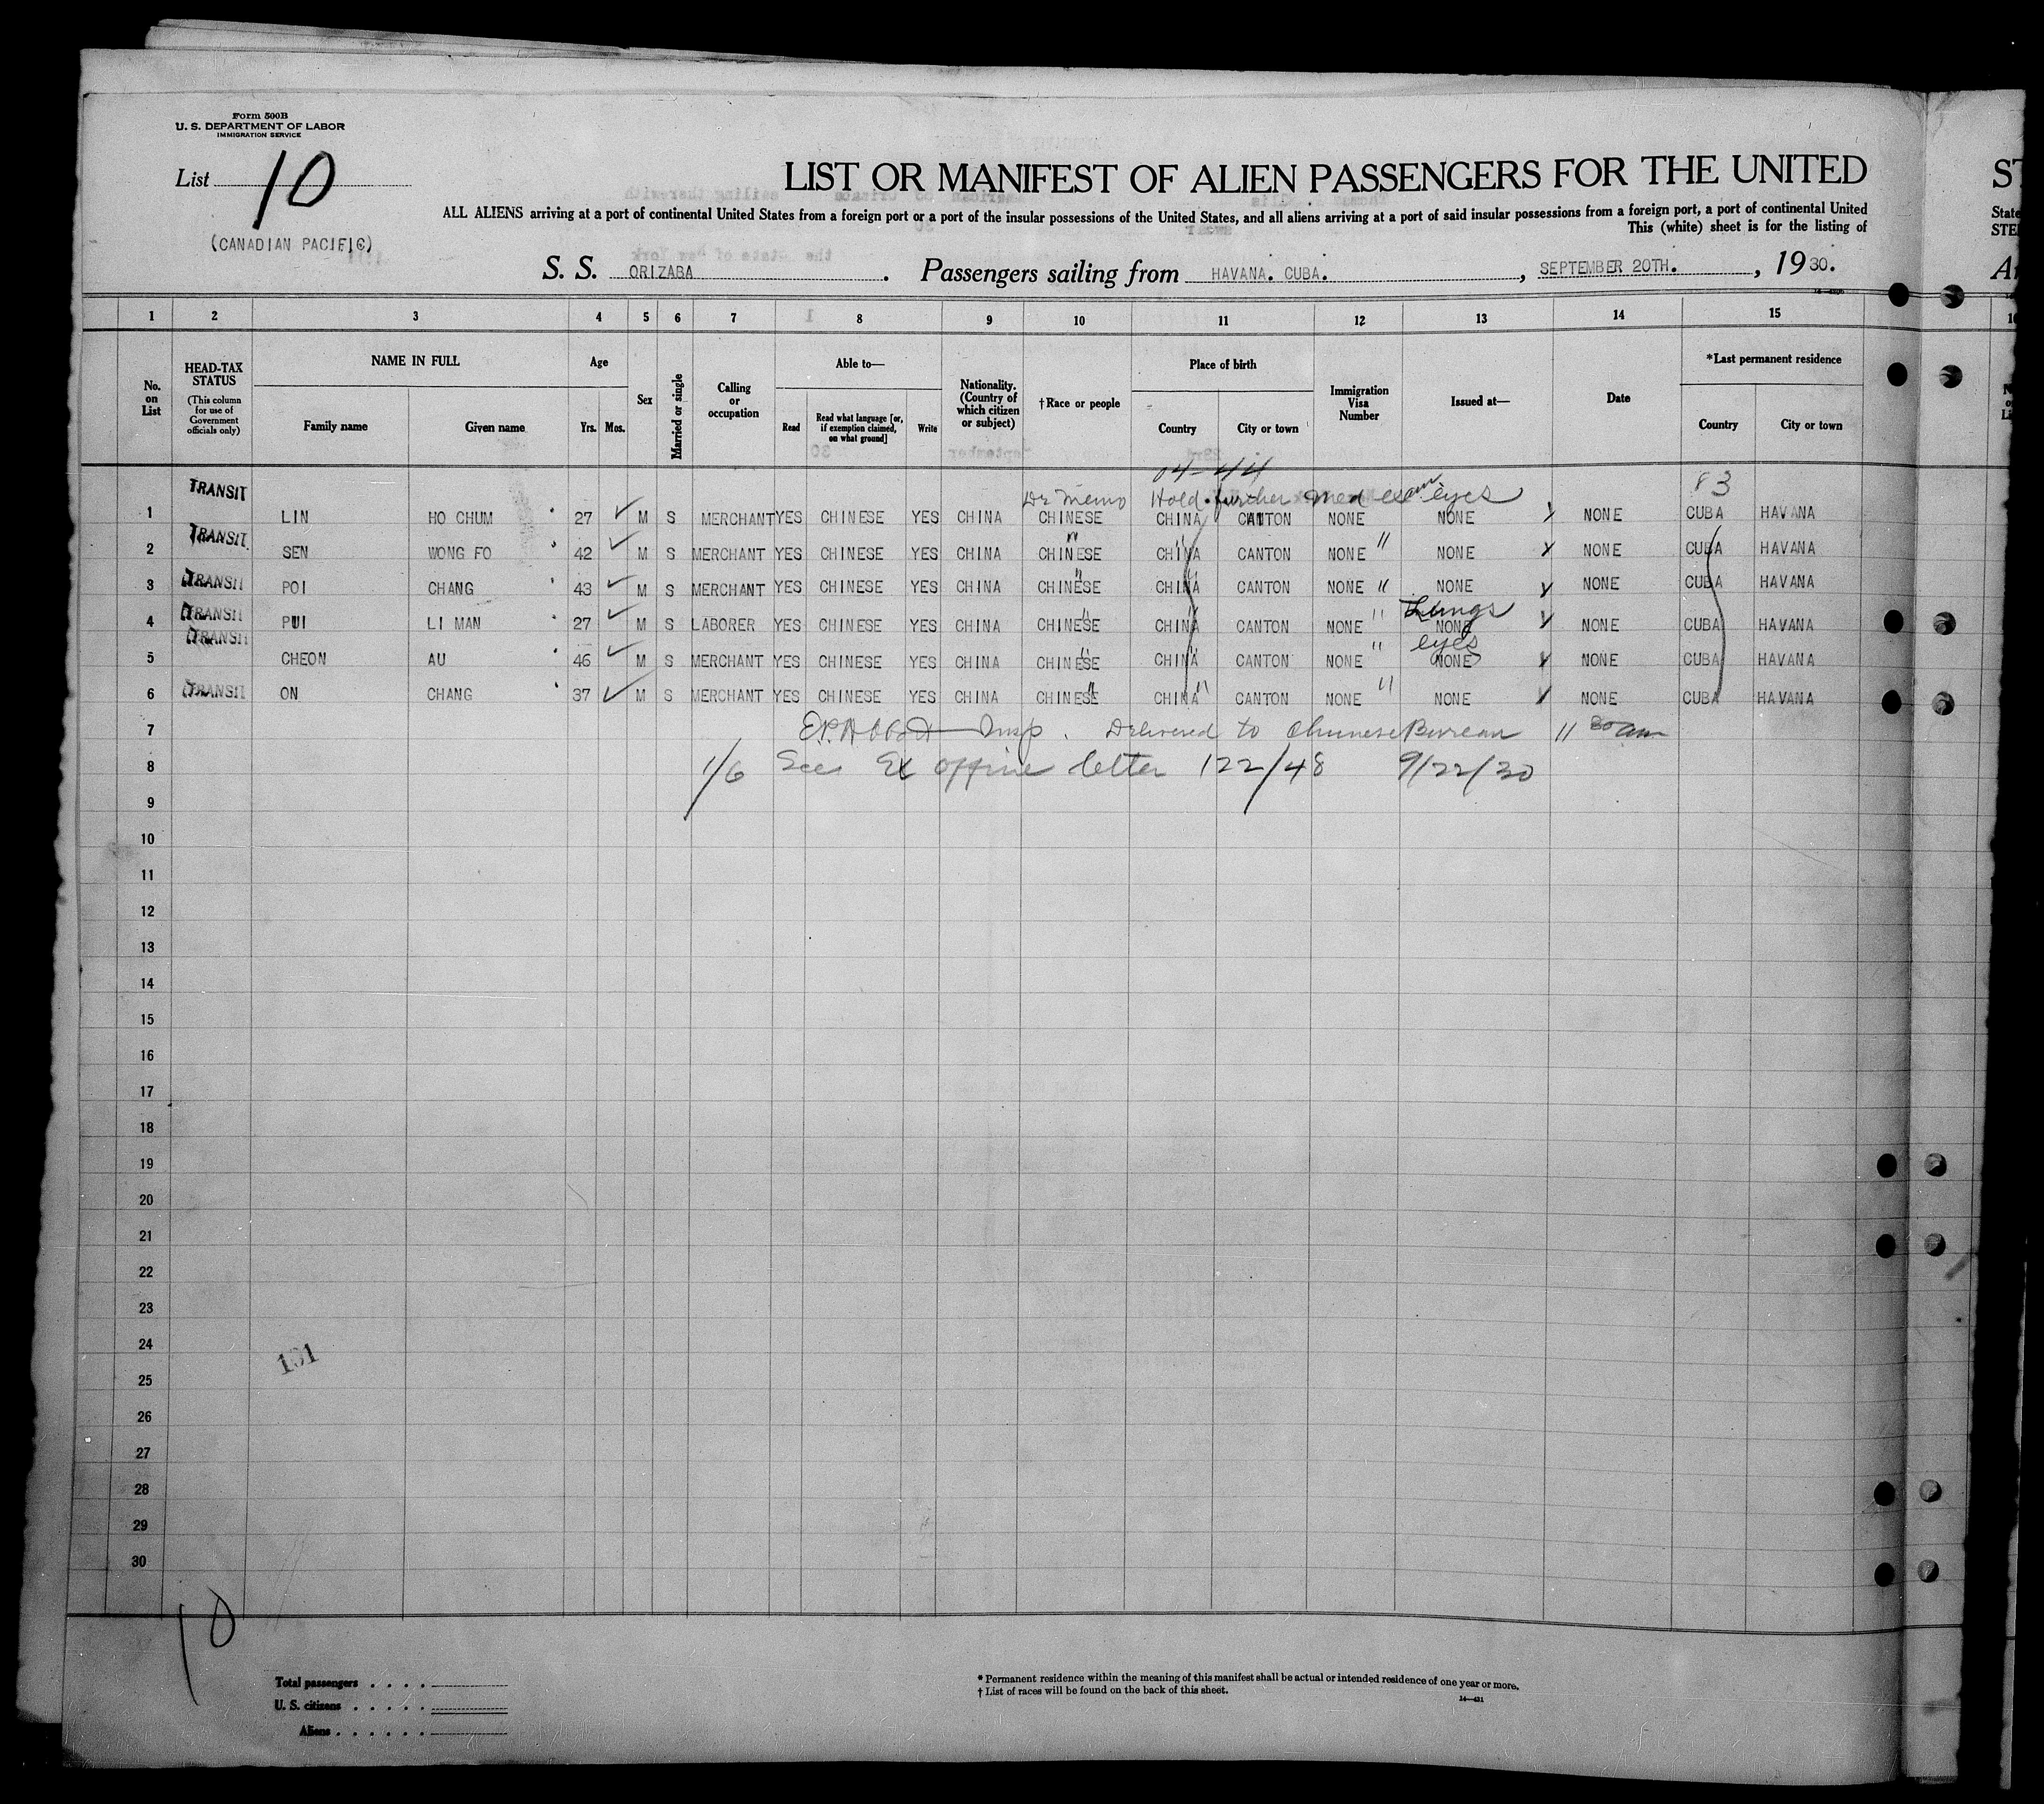 Form 500B
U. S. DEPARTMENT OF LABOR
IMMIGRATION SERVICE
List 10
(CANADIAN PACIFIC)
LIST OR MANIFEST OF ALIEN PASSENGERS FOR THE UNITED
ALL ALIENS arriving at a port of continental United States from a foreign port or a port of the insular possessions of the United States, and all aliens arriving at a port of said insular possessions from a foreign port, a port of continental United
This (white) sheet is for the listing of
S. S. ORIZABA. Passengers sailing from HAVANA. CUBA., SEPTEMBER 20TH., 1930.
1 2 3 4 5 6 7 8 9 10 11 12 13 14 15
No. on List
HEAD-TAX STATUS (This column for use of Government officials only)
NAME IN FULL Family name Given name
Age Yrs. Mos.
Sex
Married or single
Calling or occupation
Able to— Read Read what language [or, if exemption claimed, on what ground] Write
Nationality. (Country of which citizen or subject)
†Race or people
Place of birth Country City or town
Immigration Visa Number
Issued at—
Date
*Last permanent residence Country City or town
04-44
Dr Memo Hold further Med exam eyes 83
1 TRANSIT LIN HO CHUM 27 M S MERCHANT YES CHINESE YES CHINA CHINESE CHINA CANTON NONE NONE NONE CUBA HAVANA
2 TRANSIT SEN WONG FO 42 M S MERCHANT YES CHINESE YES CHINA CHINESE " CHINA " CANTON NONE " NONE NONE CUBA HAVANA
3 TRANSIT POI CHANG 43 M S MERCHANT YES CHINESE YES CHINA CHINESE " CHINA " CANTON NONE " NONE NONE CUBA HAVANA
Lungs
4 TRANSIT PUI LI MAN 27 M S LABORER YES CHINESE YES CHINA CHINESE " CHINA " CANTON NONE " NONE NONE CUBA HAVANA
eyes
5 TRANSIT CHEON AU 46 M S MERCHANT YES CHINESE YES CHINA CHINESE " CHINA " CANTON NONE " NONE NONE CUBA HAVANA
6 TRANSIT ON CHANG 37 M S MERCHANT YES CHINESE YES CHINA CHINESE " CHINA " CANTON NONE " NONE NONE CUBA HAVANA
7 E.P. Abbott Insp. Delivered to Chinese Bureau 11 30 am
8 1/6 See Ex office letter 122/48 9/22/30
9
10
11
12
13
14
15
16
17
18
19
20
21
22
23
24
25
26
27
28
29
30
10
Total passengers
U. S. citizens
Aliens
* Permanent residence within the meaning of this manifest shall be actual or intended residence of one year or more.
† List of races will be found on the back of this sheet.
14—421